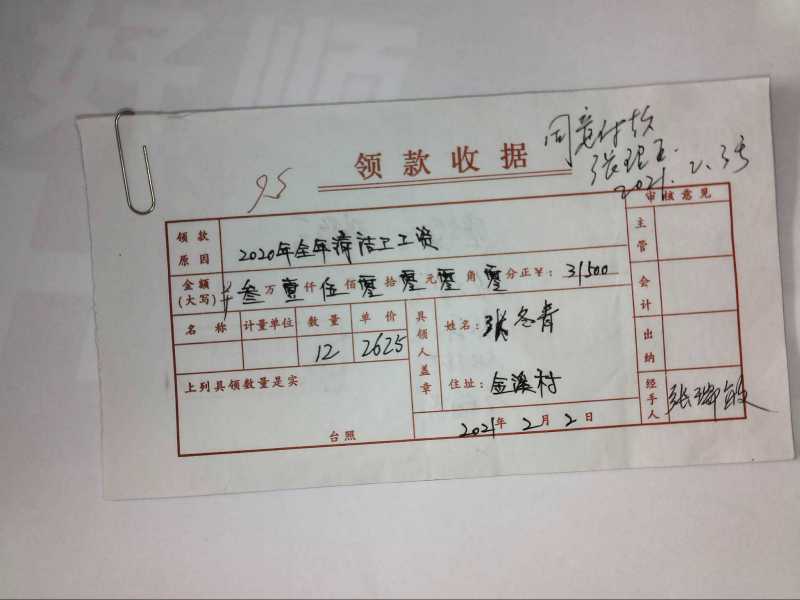 好顺
领款收据
同意付款
张理玉
2021.2.3号
95
审核意见
领款原因 2020年全年清洁卫工资
金额(大写) 叁万壹仟伍佰零拾零元零角零分正¥:31500
名称 计量单位 数量 单价
12 2625
上列具领数量是实
台照
具领人盖章
姓名:张冬青
住址:金溪村
2021年2月2日
主管
会计
出纳
经手人